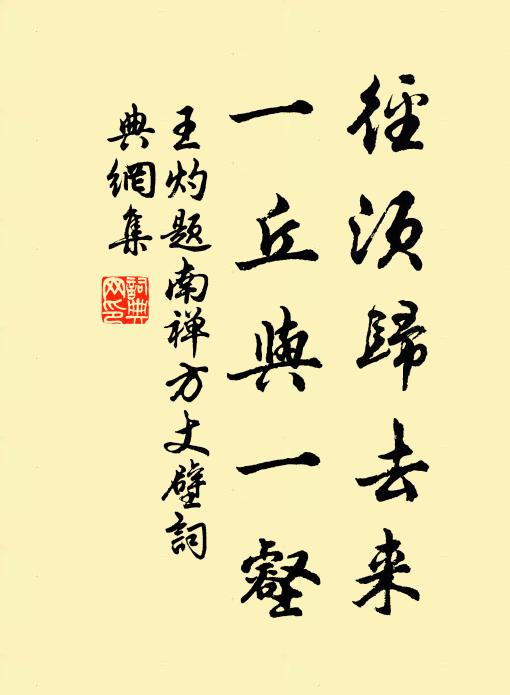 徑須歸去来
一丘與一壑
王灼题南禅方丈壁詞
典網集
詞典
网印